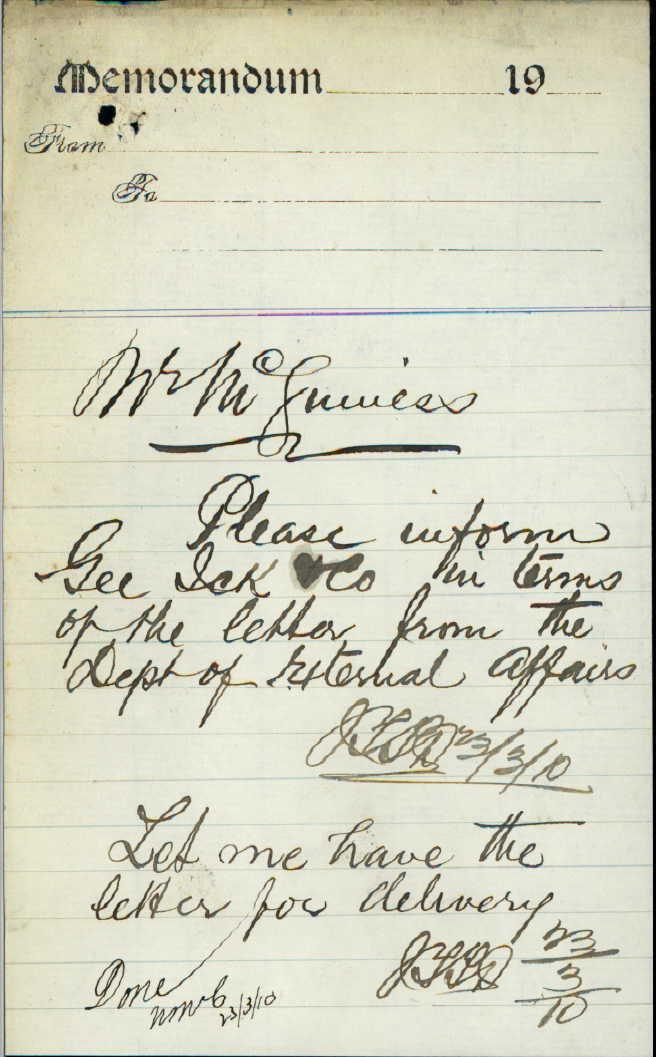 Memorandum 19
From
To
Mr McGuiness
Please inform
Gee Ick & Co in terms
of the letter from the
Dept of External Affairs
23/3/10
Let me have the
letter for delivery
23
3
10
Done
23/3/10